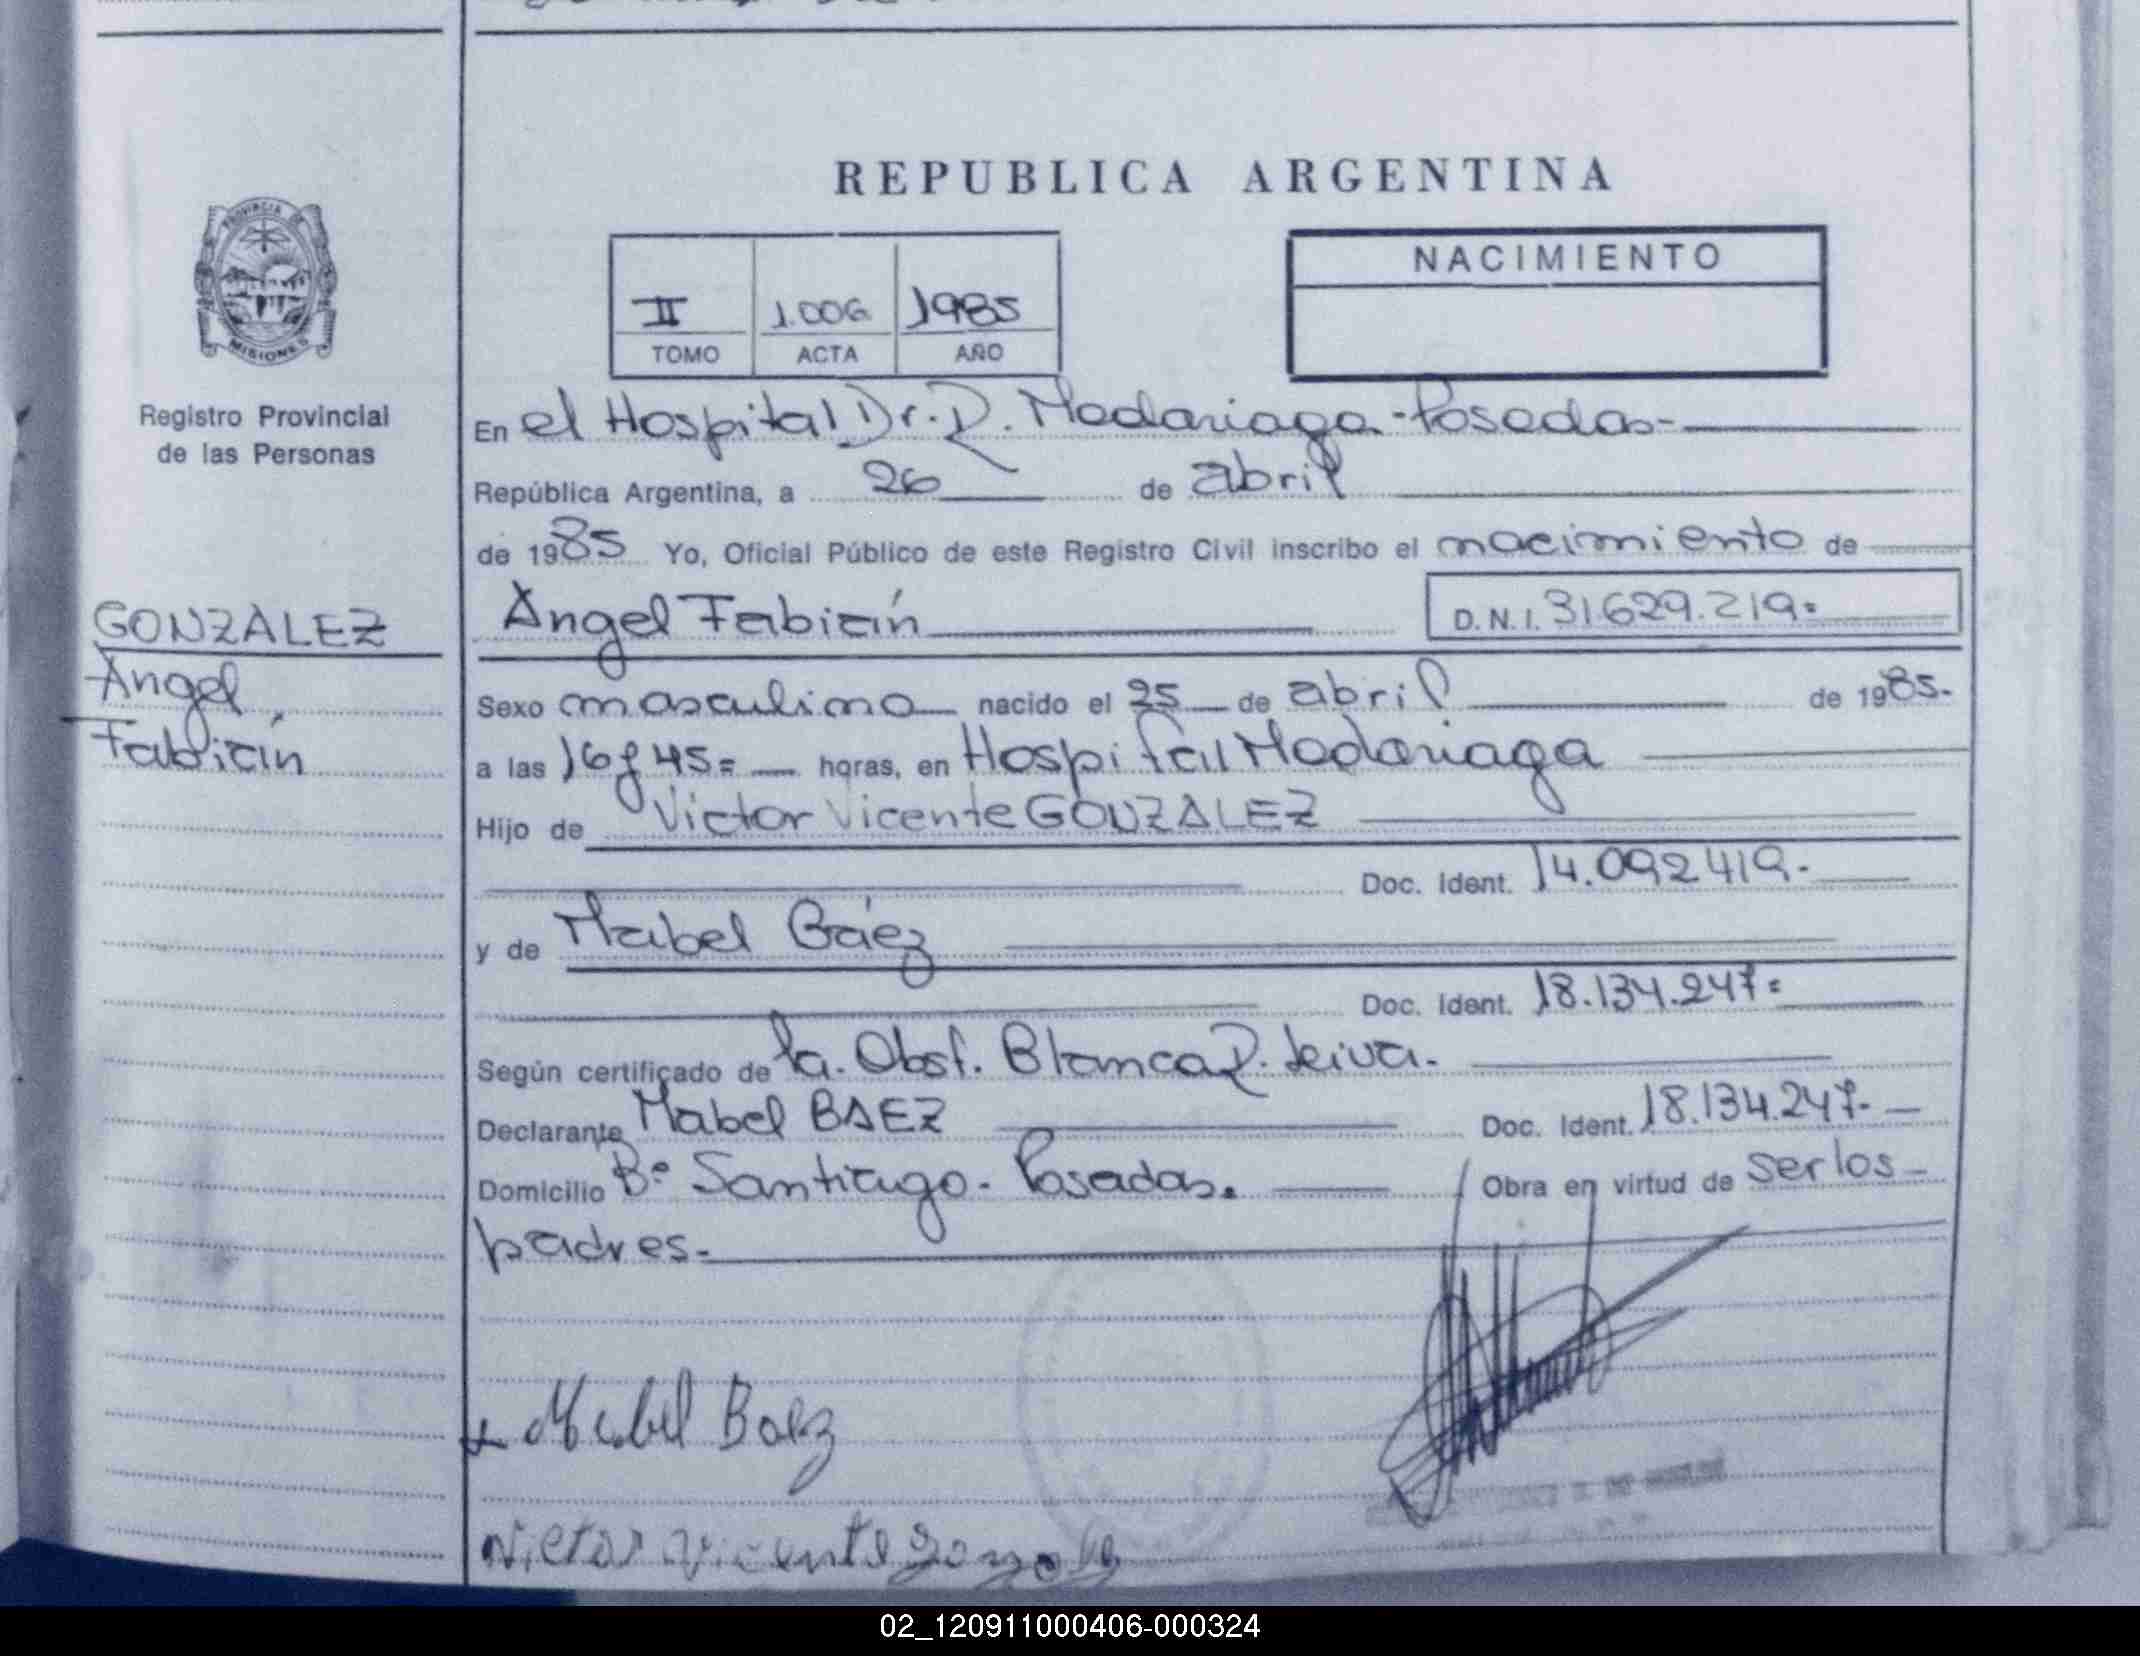 REPUBLICA ARGENTINA
PROVINCIA DE
MISIONES
Registro Provincial
de las Personas
II 1.006 1985
TOMO ACTA AÑO
NACIMIENTO
En el Hospital Dr. R. Madariaga - Posadas -
República Argentina, a 26 de abril
de 1985 Yo, Oficial Público de este Registro Civil inscribo el nacimiento de
GONZALEZ
Angel
Fabián
Angel Fabián D.N.I. 31.629.219=
Sexo masculino nacido el 25 de abril de 1985.
a las 16 y 45= horas, en Hospital Madariaga
Hijo de Victor Vicente GONZALEZ
Doc. Ident. 14.092.419.
y de Mabel Báez
Doc. Ident. 18.134.247=
Según certificado de la Obst. Blanca R. Leiva.
Declarante Mabel BAEZ Doc. Ident. 18.134.247.
Domicilio Bº Santiago - Posadas. Obra en virtud de ser los
padres.
Mabel Baez
Victor Vicente
02_120911000406-000324